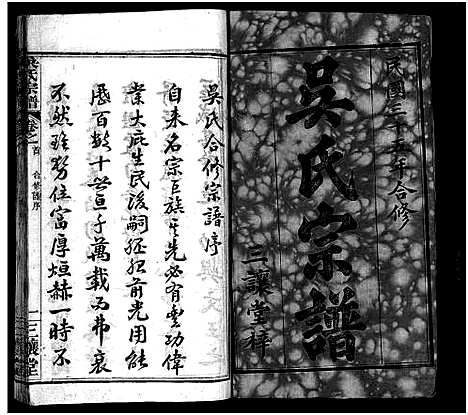 民國三十五年合修
吳氏宗譜
三讓堂梓
吳氏合修宗譜序
自来名宗巨族其先必有豐功偉
業大庇生民後嗣纴承前光用能
歷百數十世亘千萬载而弗衰
不然雖勢位富厚烜赫一時不
吳氏宗譜
卷之首
合修譜序
一
三讓堂